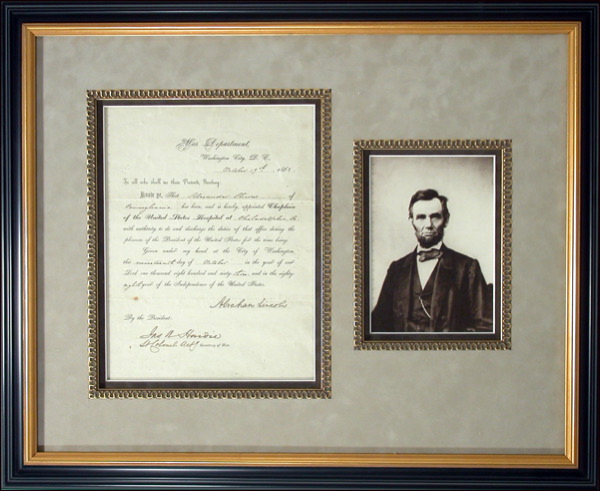 War Department,
Washington City, D. C.
October 19th, 1863
To all who shall see these Presents, Greeting:
Know ye, That Alexander Shiras of
Pennsylvania has been, and is hereby appointed Chaplain
of the United States Hospital at Philadelphia, Pa.
with authority to do and discharge the duties of that office during the
pleasure of the President of the United States for the time being.
Given under my hand at the City of Washington,
this nineteenth day of October in the year of our
Lord one thousand eight hundred and sixty and in the eighty
eighth year of the Independence of the United States.
Abraham Lincoln
By the President:
Jas A Hardie
Lt Colonel &